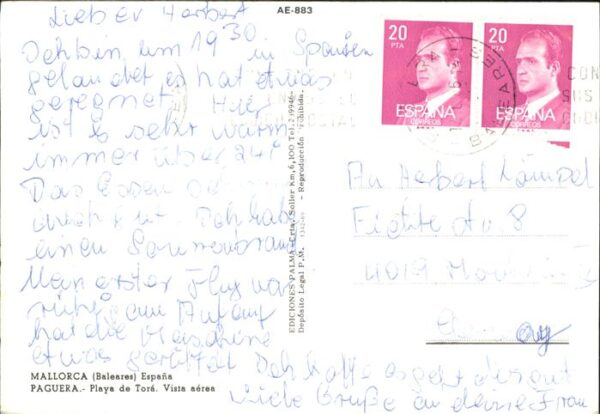 Lieber Herbert
AE-883
Ich bin um 19 30 in Spanien
gelandet es hat etwas
geregnet. Hier
ist es sehr warm
immer über 24°
Das Essen
auch gut. Ich habe
einen Sonnenbrand
Mein erster Flug war
ruhig am Anfang
hat die Maschine
etwas gerüttelt Ich hoffe es geht dir gut
Liebe Grüße an deine Frau
MALLORCA (Baleares) España
PAGUERA.- Playa de Torá. Vista aérea
EDICIONES PALMA-Crta. Soller Km, 6,100 Tel.
Depósito Legal P.M. - Reproducción prohibida.
20
PTA
ESPAÑA
CORREOS
20
PTA
ESPAÑA
CORREOS
BALEARES
An Herbert
Fichte 8
4019